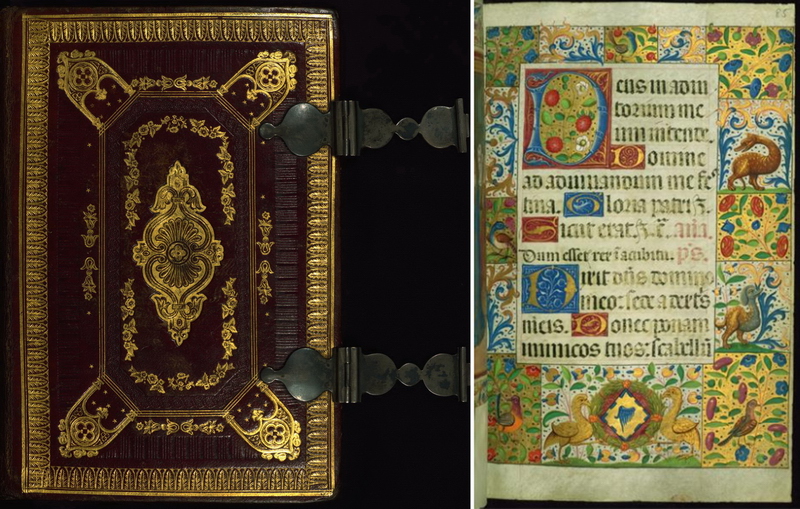 85
Deus in adiu
torium me
um intende.
Domine
ad adiuuandum me fes
tina. Gloria patri &.
Sicut erat. &. c. ana.
Dum esset rex i acubitu. ps.
Dixit dns domino
meo: sede a dextris
meis. Donec ponam
inimicos tuos: scabellu